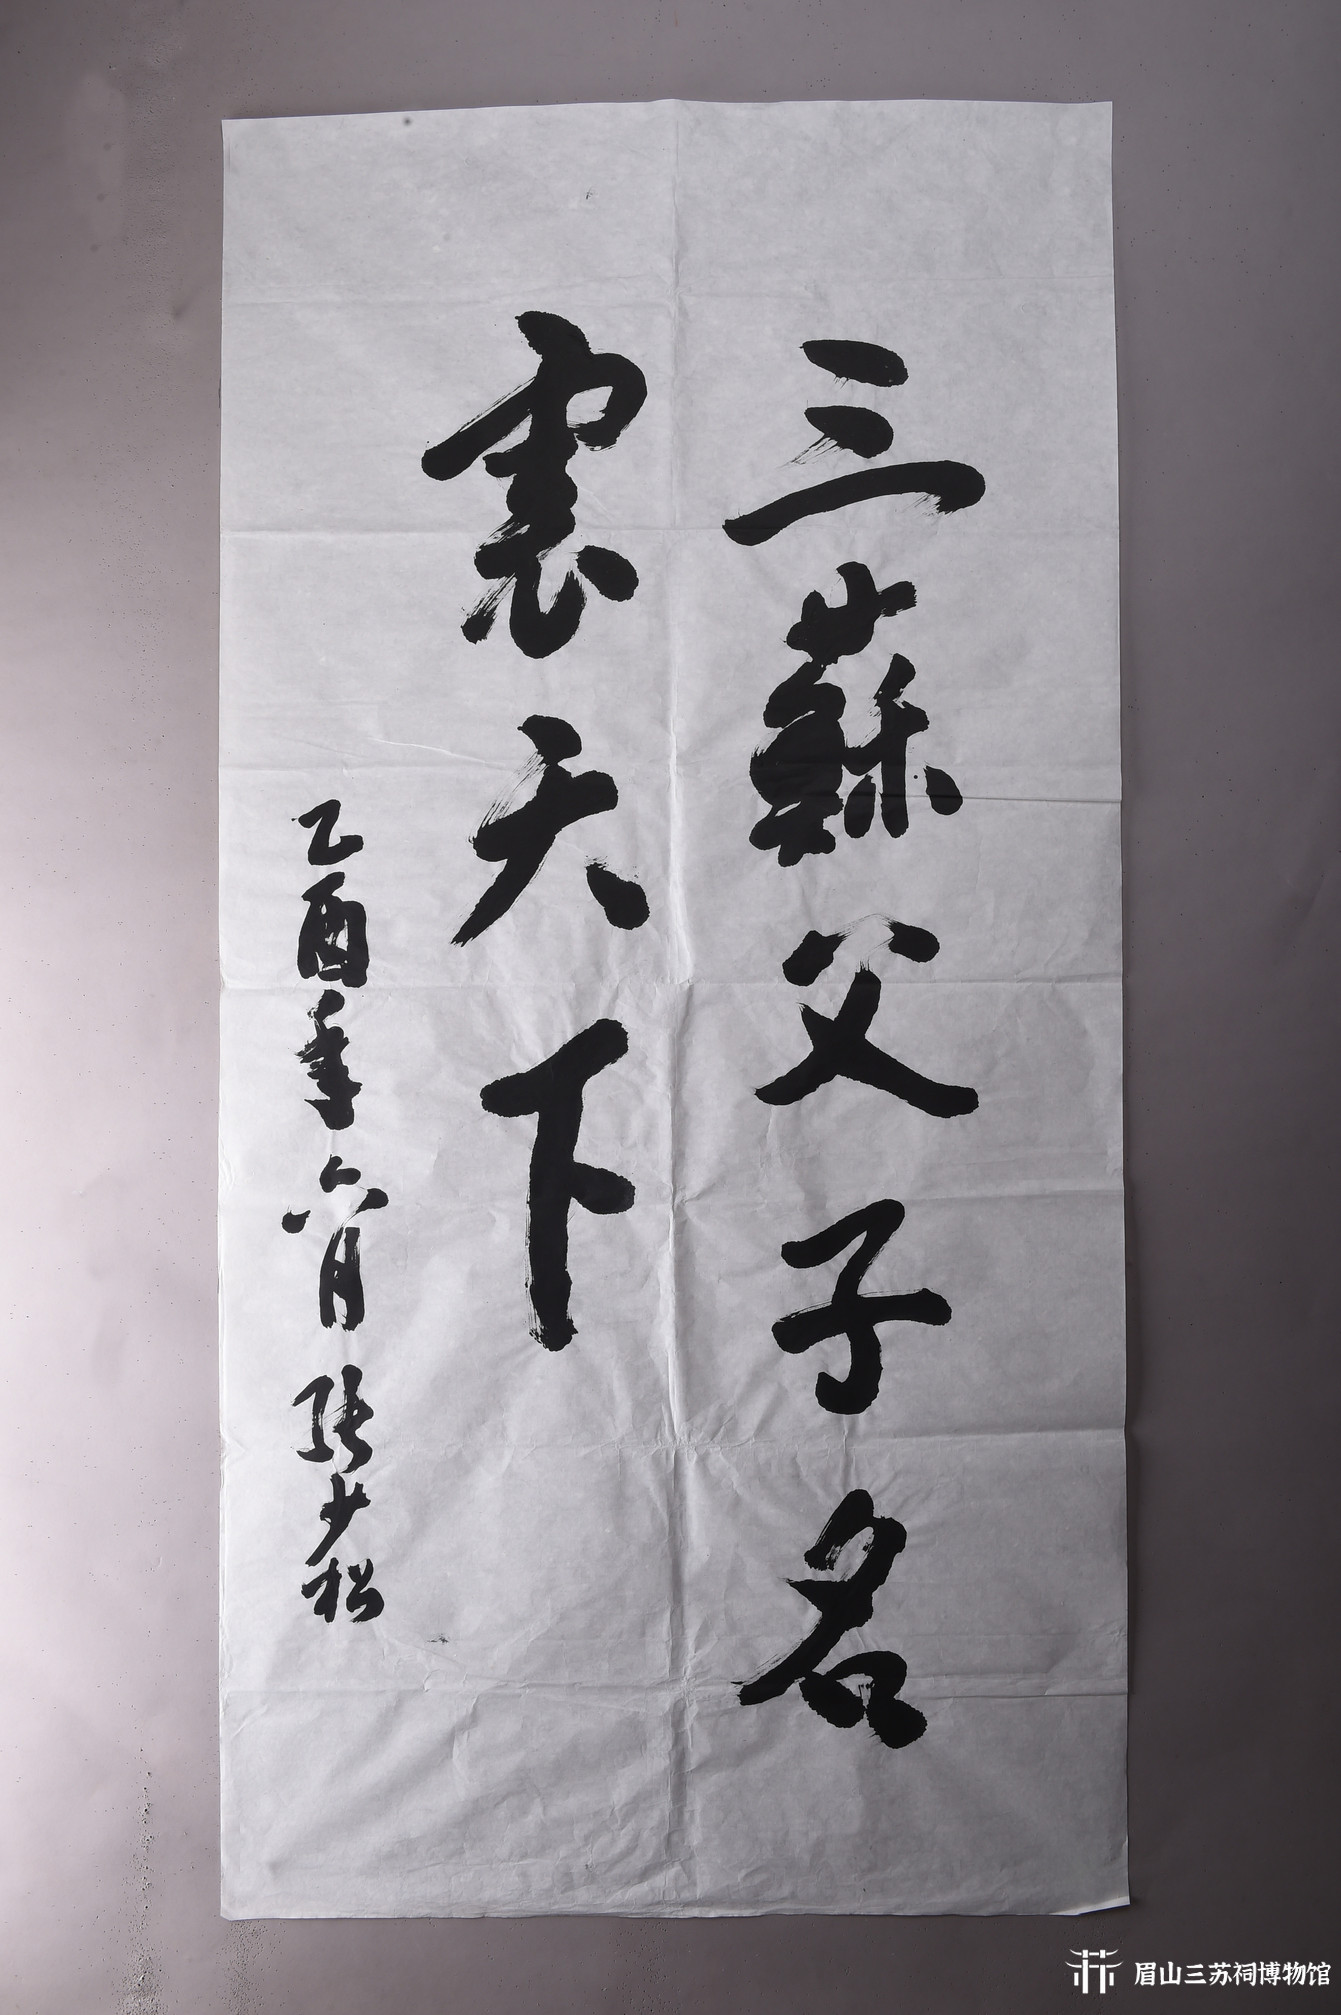 三蘇父子名
震天下
乙酉年六月張少松
眉山三苏祠博物馆